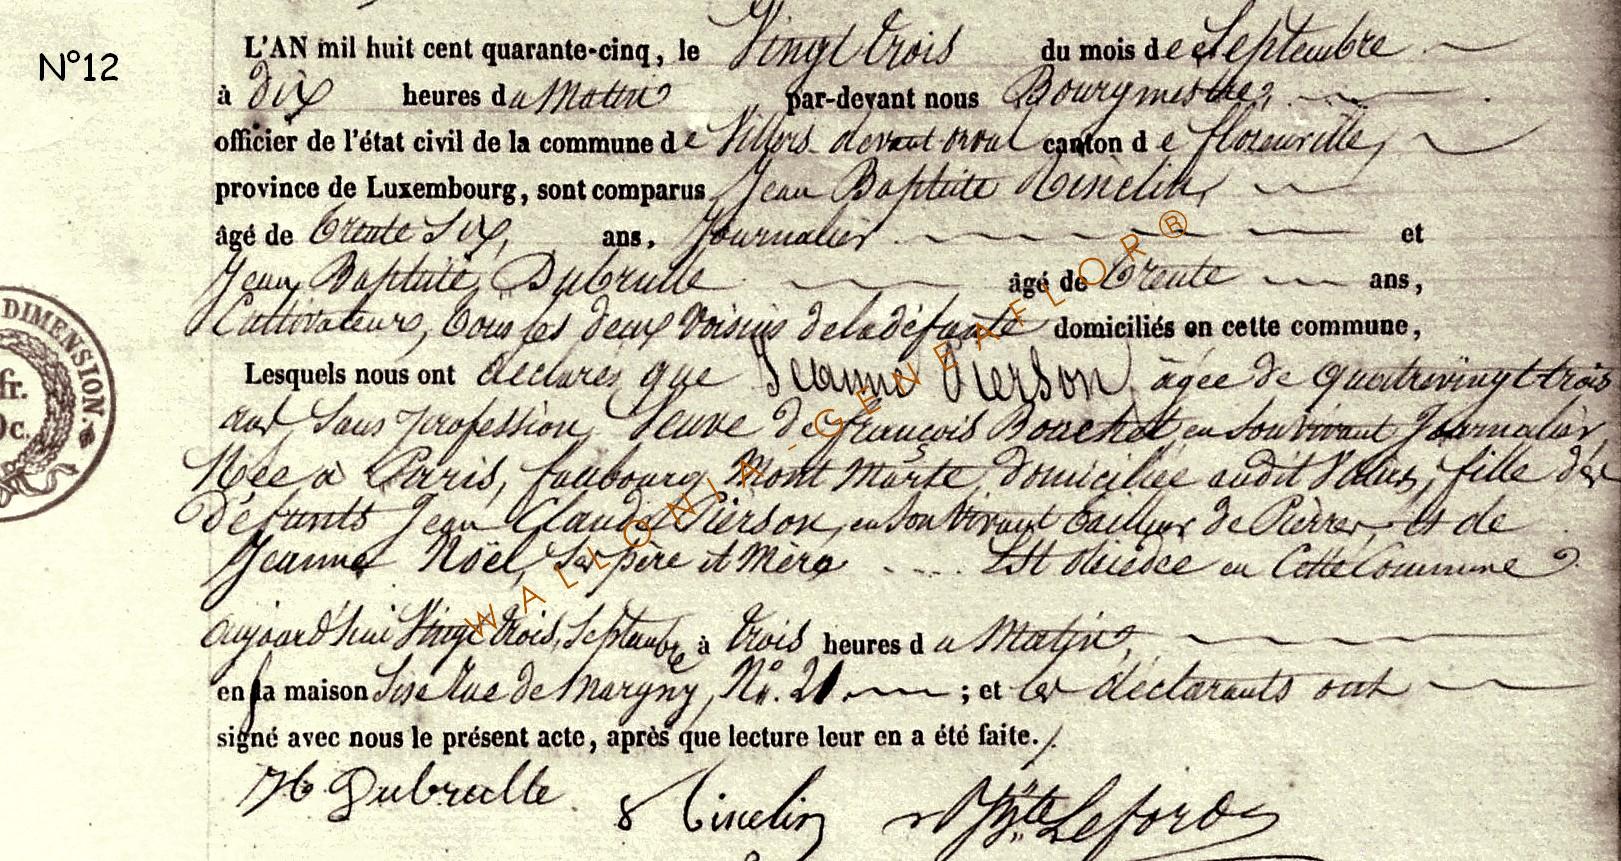 N°12
L'AN mil huit cent quarante-cinq, le Vingt trois du mois de Septembre
à dix heures du Matin par-devant nous Bourgmestre,
officier de l'état civil de la commune de Villers devant orval canton de florenville,
province de Luxembourg, sont comparus Jean Baptiste Tinclin,
âgé de trente Six, ans, Journalier et
Jean Baptiste Dubrulle âgé de trente ans,
Cultivateurs, tous les deux Voisins de la défunte domiciliés en cette commune,
Lesquels nous ont déclarés que Jeanne Pierson, agée de quatrevingt trois
ans Sans profession, Veuve de françois Bouchot en Son vivant Journalier,
Née à Paris, faubourg Mont Marte, domiciliée audit Villers, fille des
Défunts Jean Claude Pierson, en Son Vivant tailleur de Pierres, et de
Jeanne Noël, Ses père et Mère Est décédée en Cette Commune
aujourd'hui Vingt trois, Septembre à trois heures du Matin,
en la maison Sise Rue de Margny, N°. 21 ; et les déclarants ont
signé avec nous le présent acte, après que lecture leur en a été faite./.
Dubrulle Tinclin Lefort
DIMENSION.
fr.
0c.
WALLONIA-GENEAFLOR®